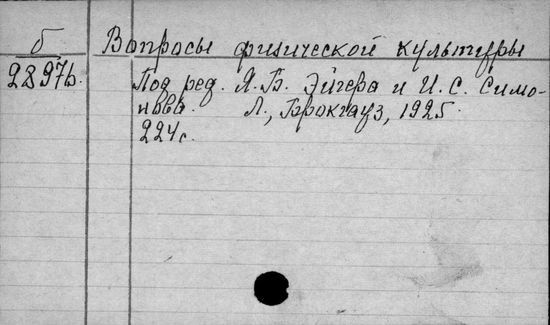 б
22976.
Вопросы физической культуры
Под ред. Я. Б. Эйгера и И. С. Симо-
нова. Л., Брокгауз, 1925.
224с.